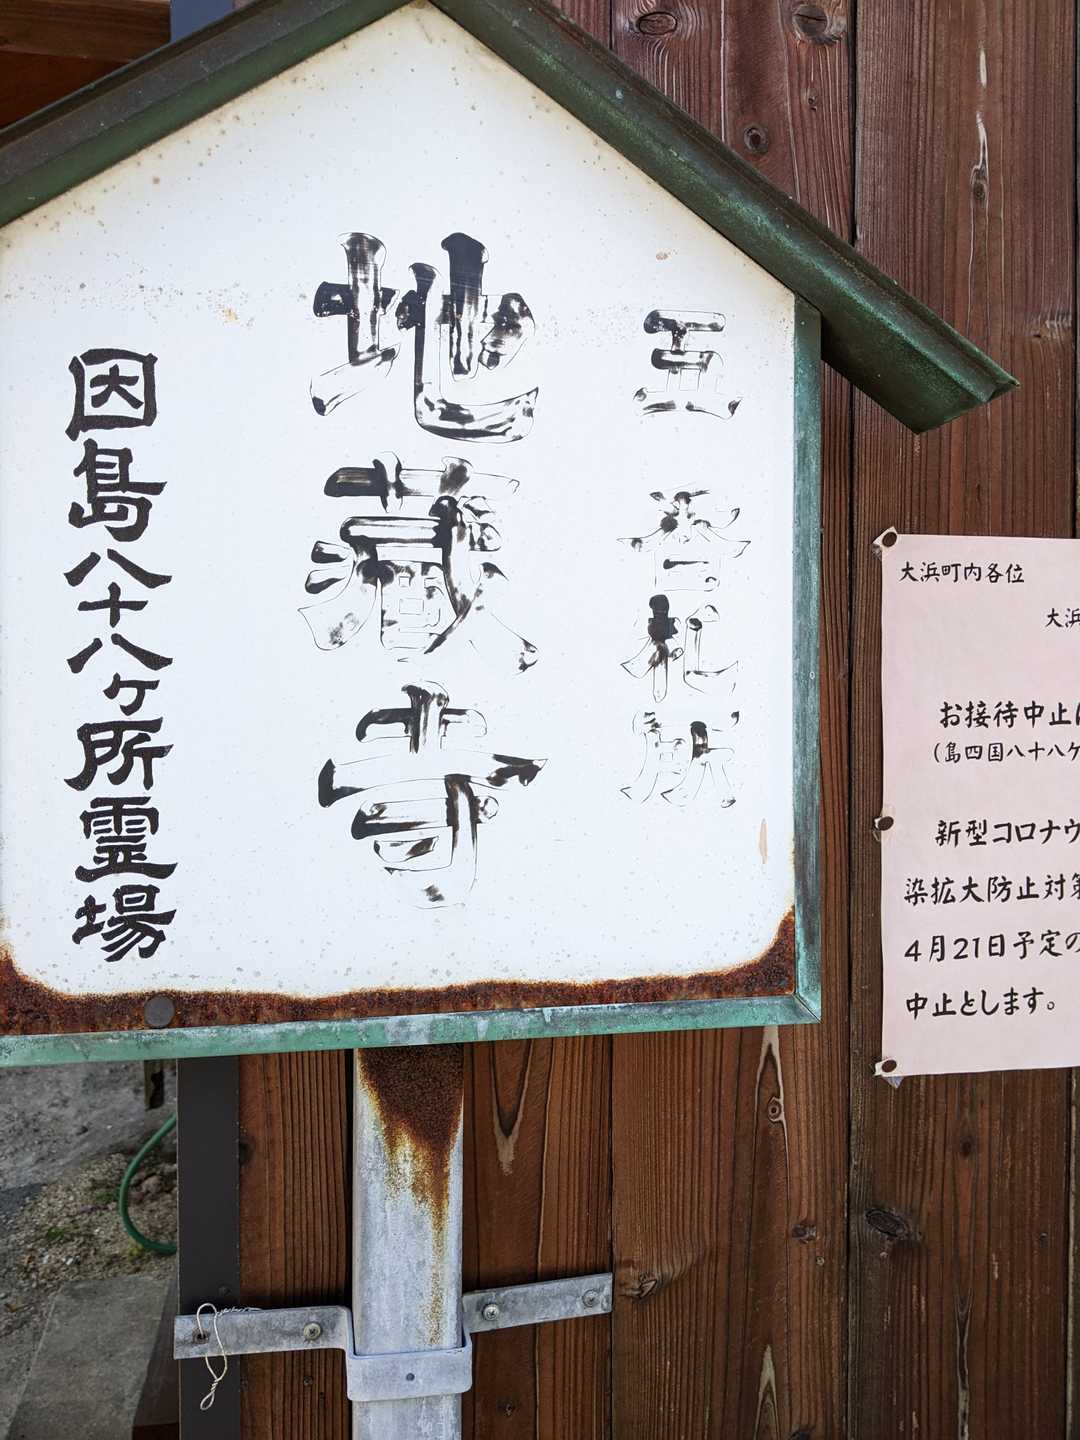 五番札所
地蔵寺
因島八十八ケ所霊場
大浜町内各位
大浜
お接待中止
(島四国八十八ケ
新型コロナウ
染拡大防止対策
4月21日予定の
中止とします。